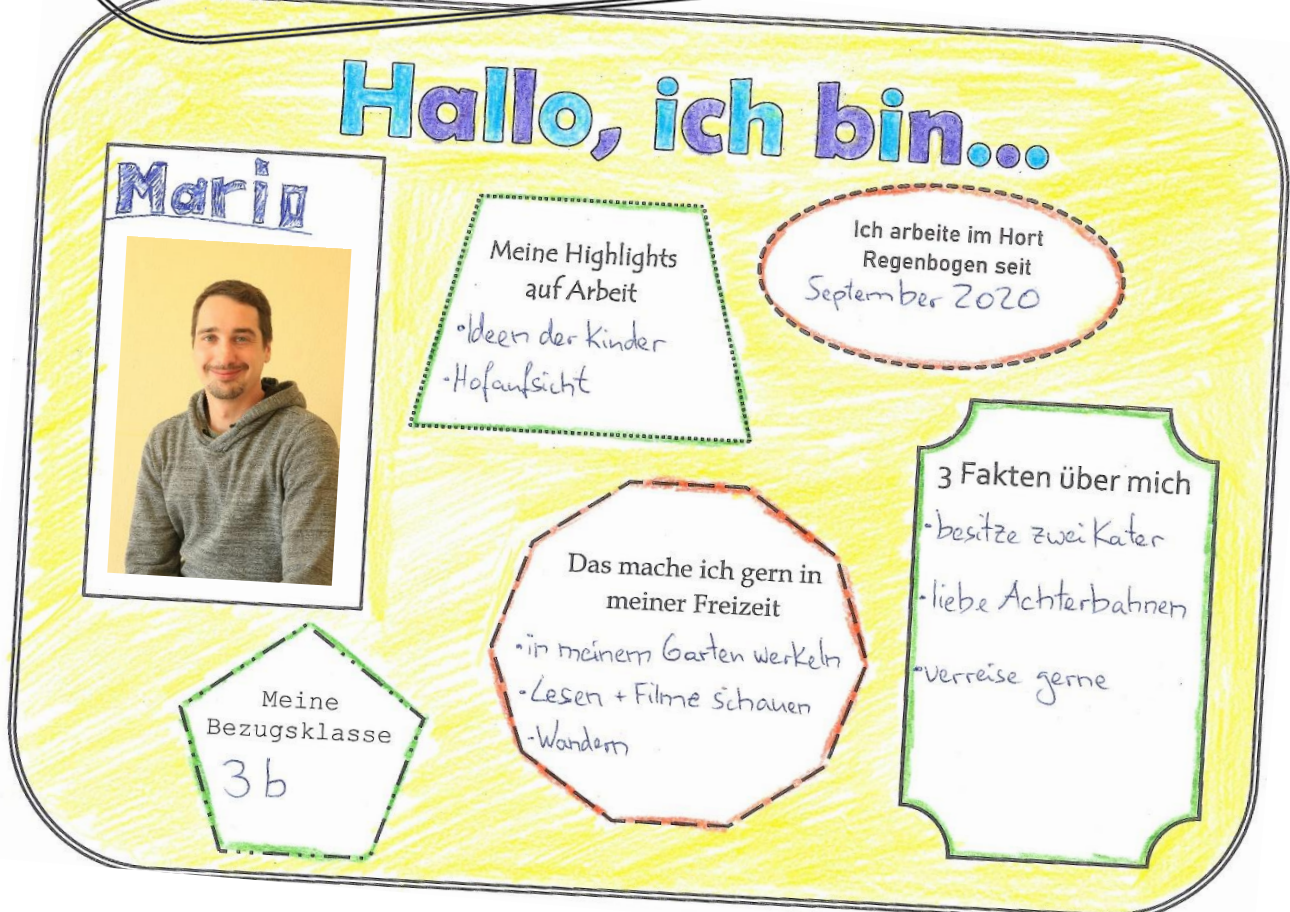 Hallo, ich bin...
Mario
Meine Highlights
auf Arbeit
•Ideen der Kinder
•Hofaufsicht
Ich arbeite im Hort
Regenbogen seit
September 2020
3 Fakten über mich
•besitze zwei Kater
•liebe Achterbahnen
•verreise gerne
Das mache ich gern in
meiner Freizeit
•in meinem Garten werkeln
•Lesen + Filme schauen
•Wandern
Meine
Bezugsklasse
3b